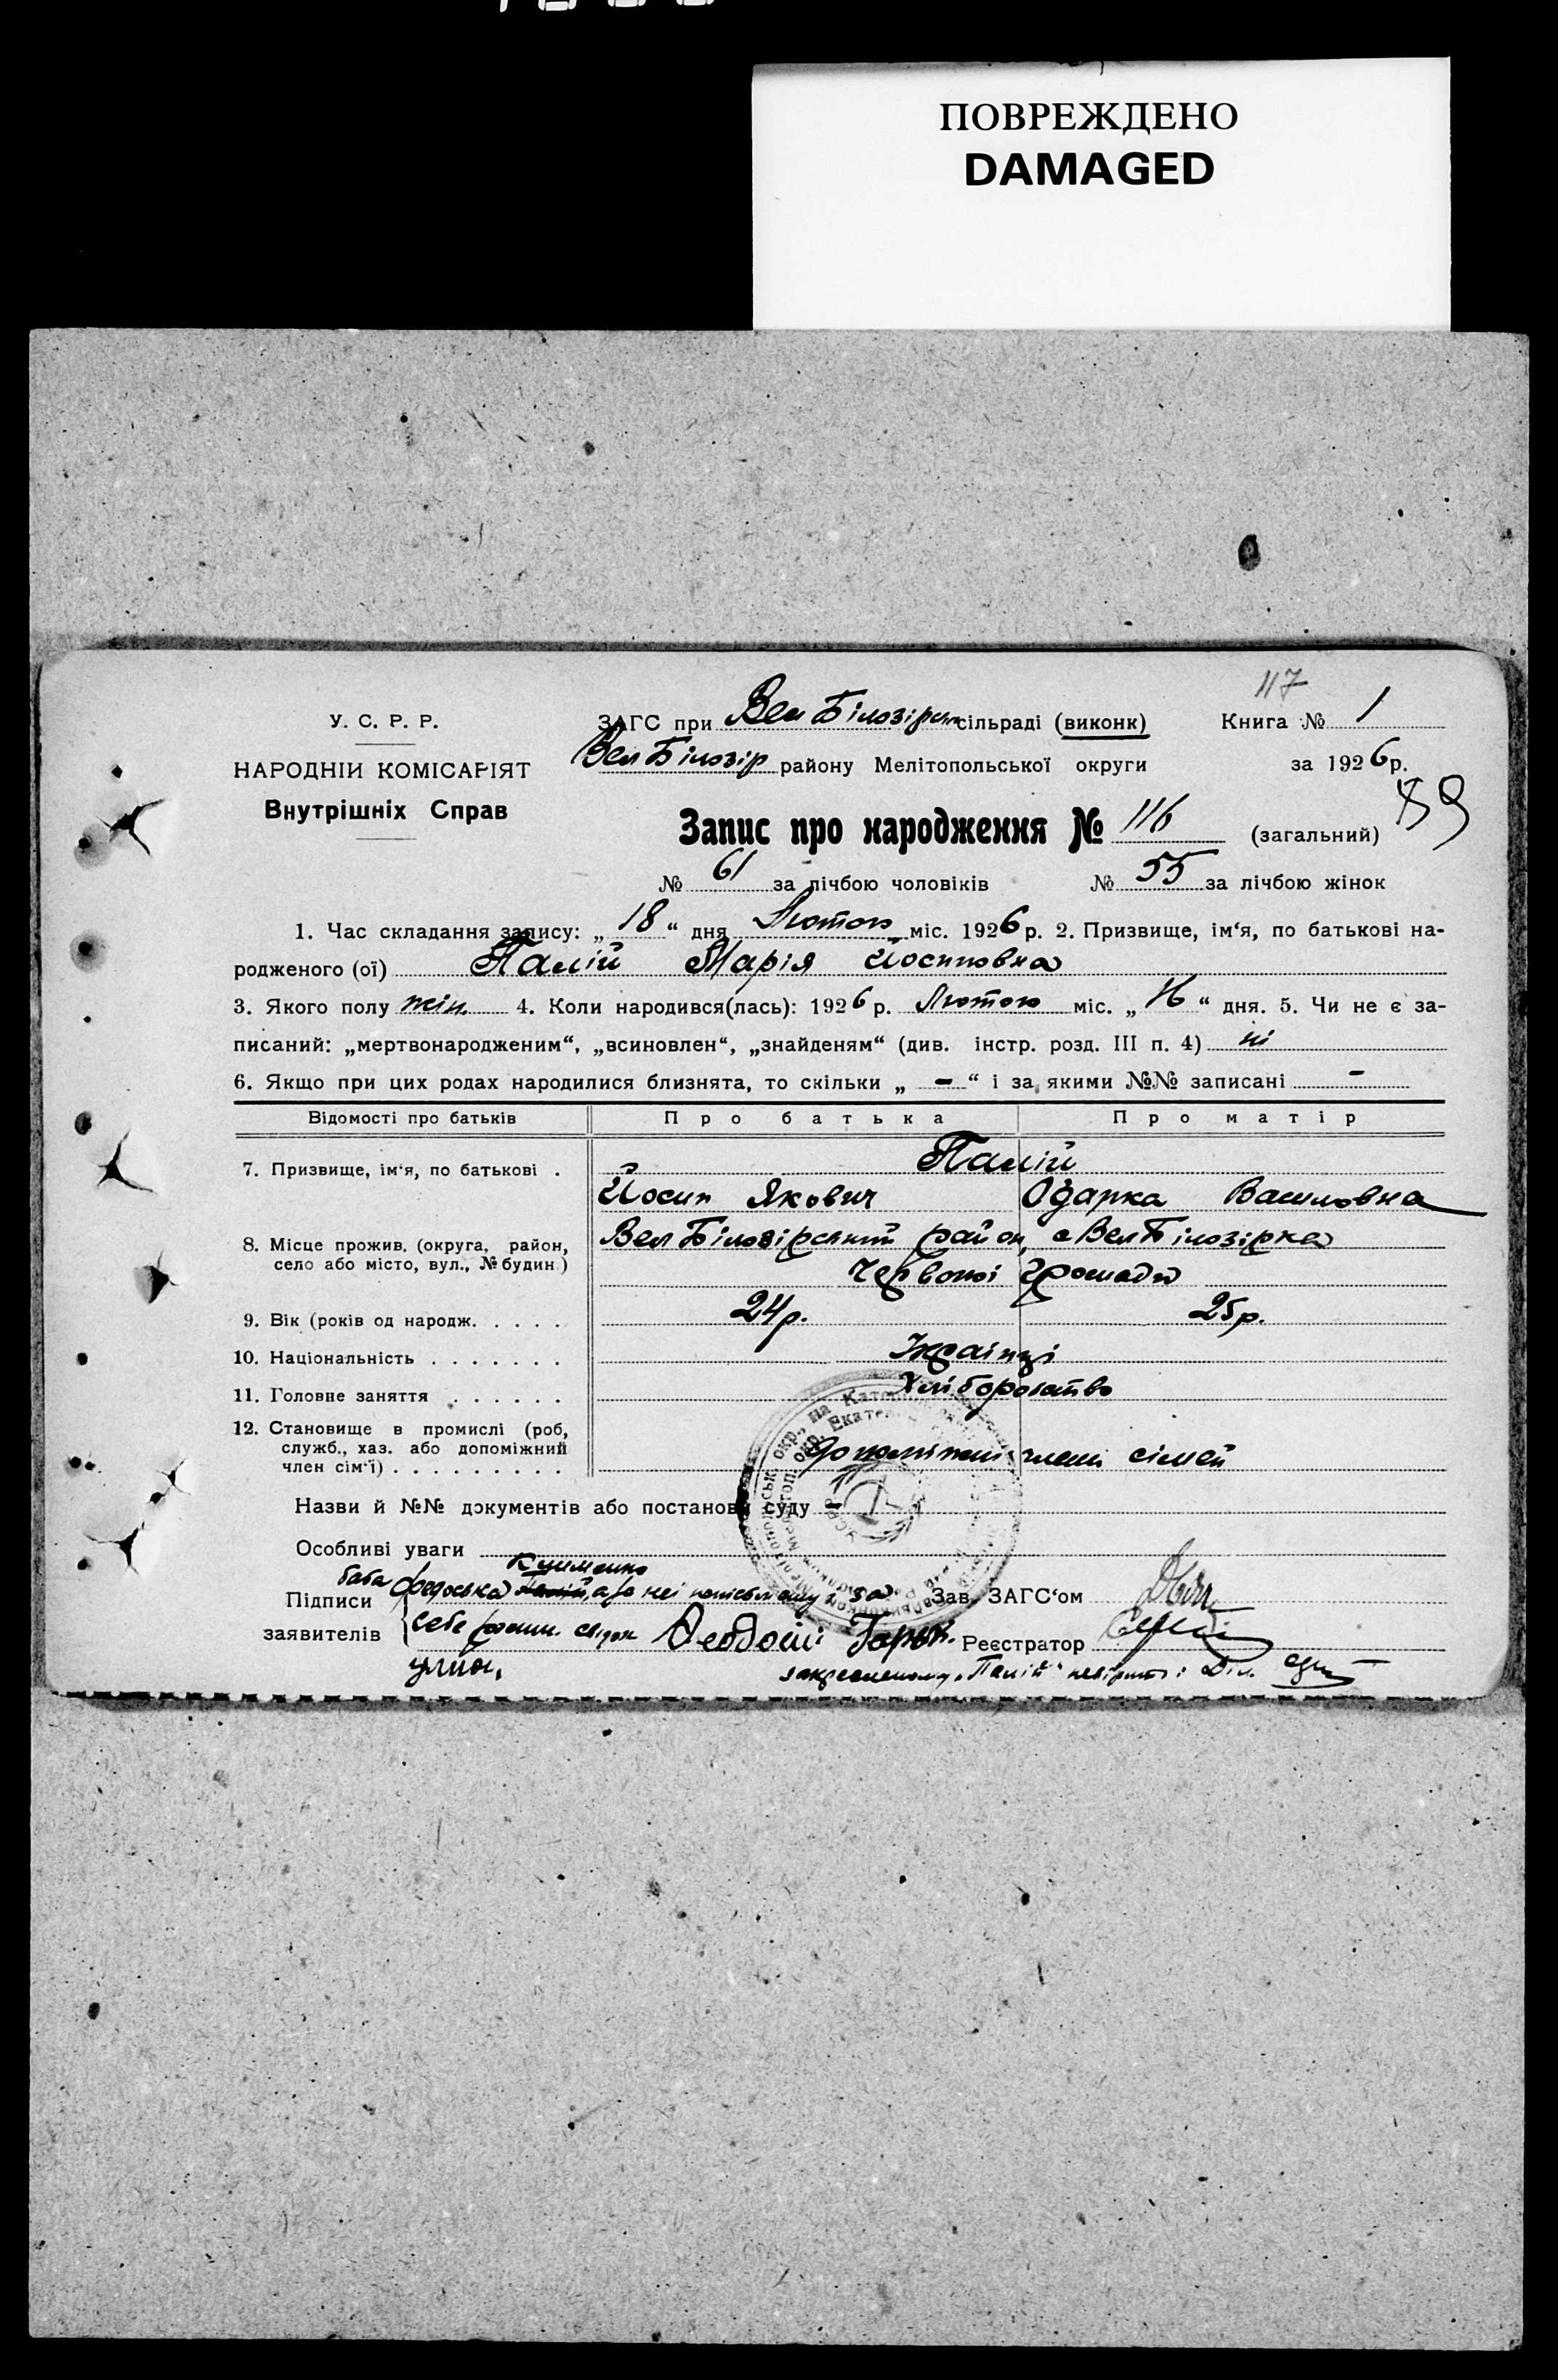 ПОВРЕЖДЕНО
DAMAGED
117
У. С. Р. Р.
ЗАГС при Вел Білозірск сільраді (виконк) Книга № 1
НАРОДНІЙ КОМІСАРІЯТ
Вел Білозір району Мелітопольської округи за 1926 р.
Внутрішніх Справ
89
Запис про народження № 116 (загальний)
№ 61 за лічбою чоловіків № 55 за лічбою жінок
1. Час складання запису: „ 18 “ дня Лютого міс. 1926 р. 2. Призвище, ім‘я, по батькові на-
родженого (ої) Палій Марія Йосиповна
3. Якого полу жін. 4. Коли народився(лась): 1926 р. Лютого міс. „ 16 “ дня. 5. Чи не є за-
писаний: „мертвонародженим“, „всиновлен“, „знайденям“ (див. інстр. розд. III п. 4) ні
6. Якщо при цих родах народилися близнята, то скільки „ – “ і за якими №№ записані –
Відомості про батьків Про батька Про матір
7. Призвище, ім‘я, по батькові . Палій
Йосип Якович Одарка Василовна
8. Місце прожив. (округа, район, Вел Білозірський район, с Вел Білозірка
село або місто, вул., № будин.) Червоної Громади
9. Вік (років од народж. . . . . 24р. 25р.
10. Національність . . . . . . . Українці
11. Головне заняття . . . . . . Хліборобство
12. Становище в промислі (роб,
служб., хаз. або допоміжний
член сім‘ї) . . . . . . . . . Допоміжні члени сімей
Назви й №№ документів або постанови суду –
Особливі уваги
Клименко
баба Федоська Палій, а за неі
Підписи Зав. ЗАГС‘ом
заявителів себе свідок Феодосій Реєстратор
закресленому „Палій“ невірить: